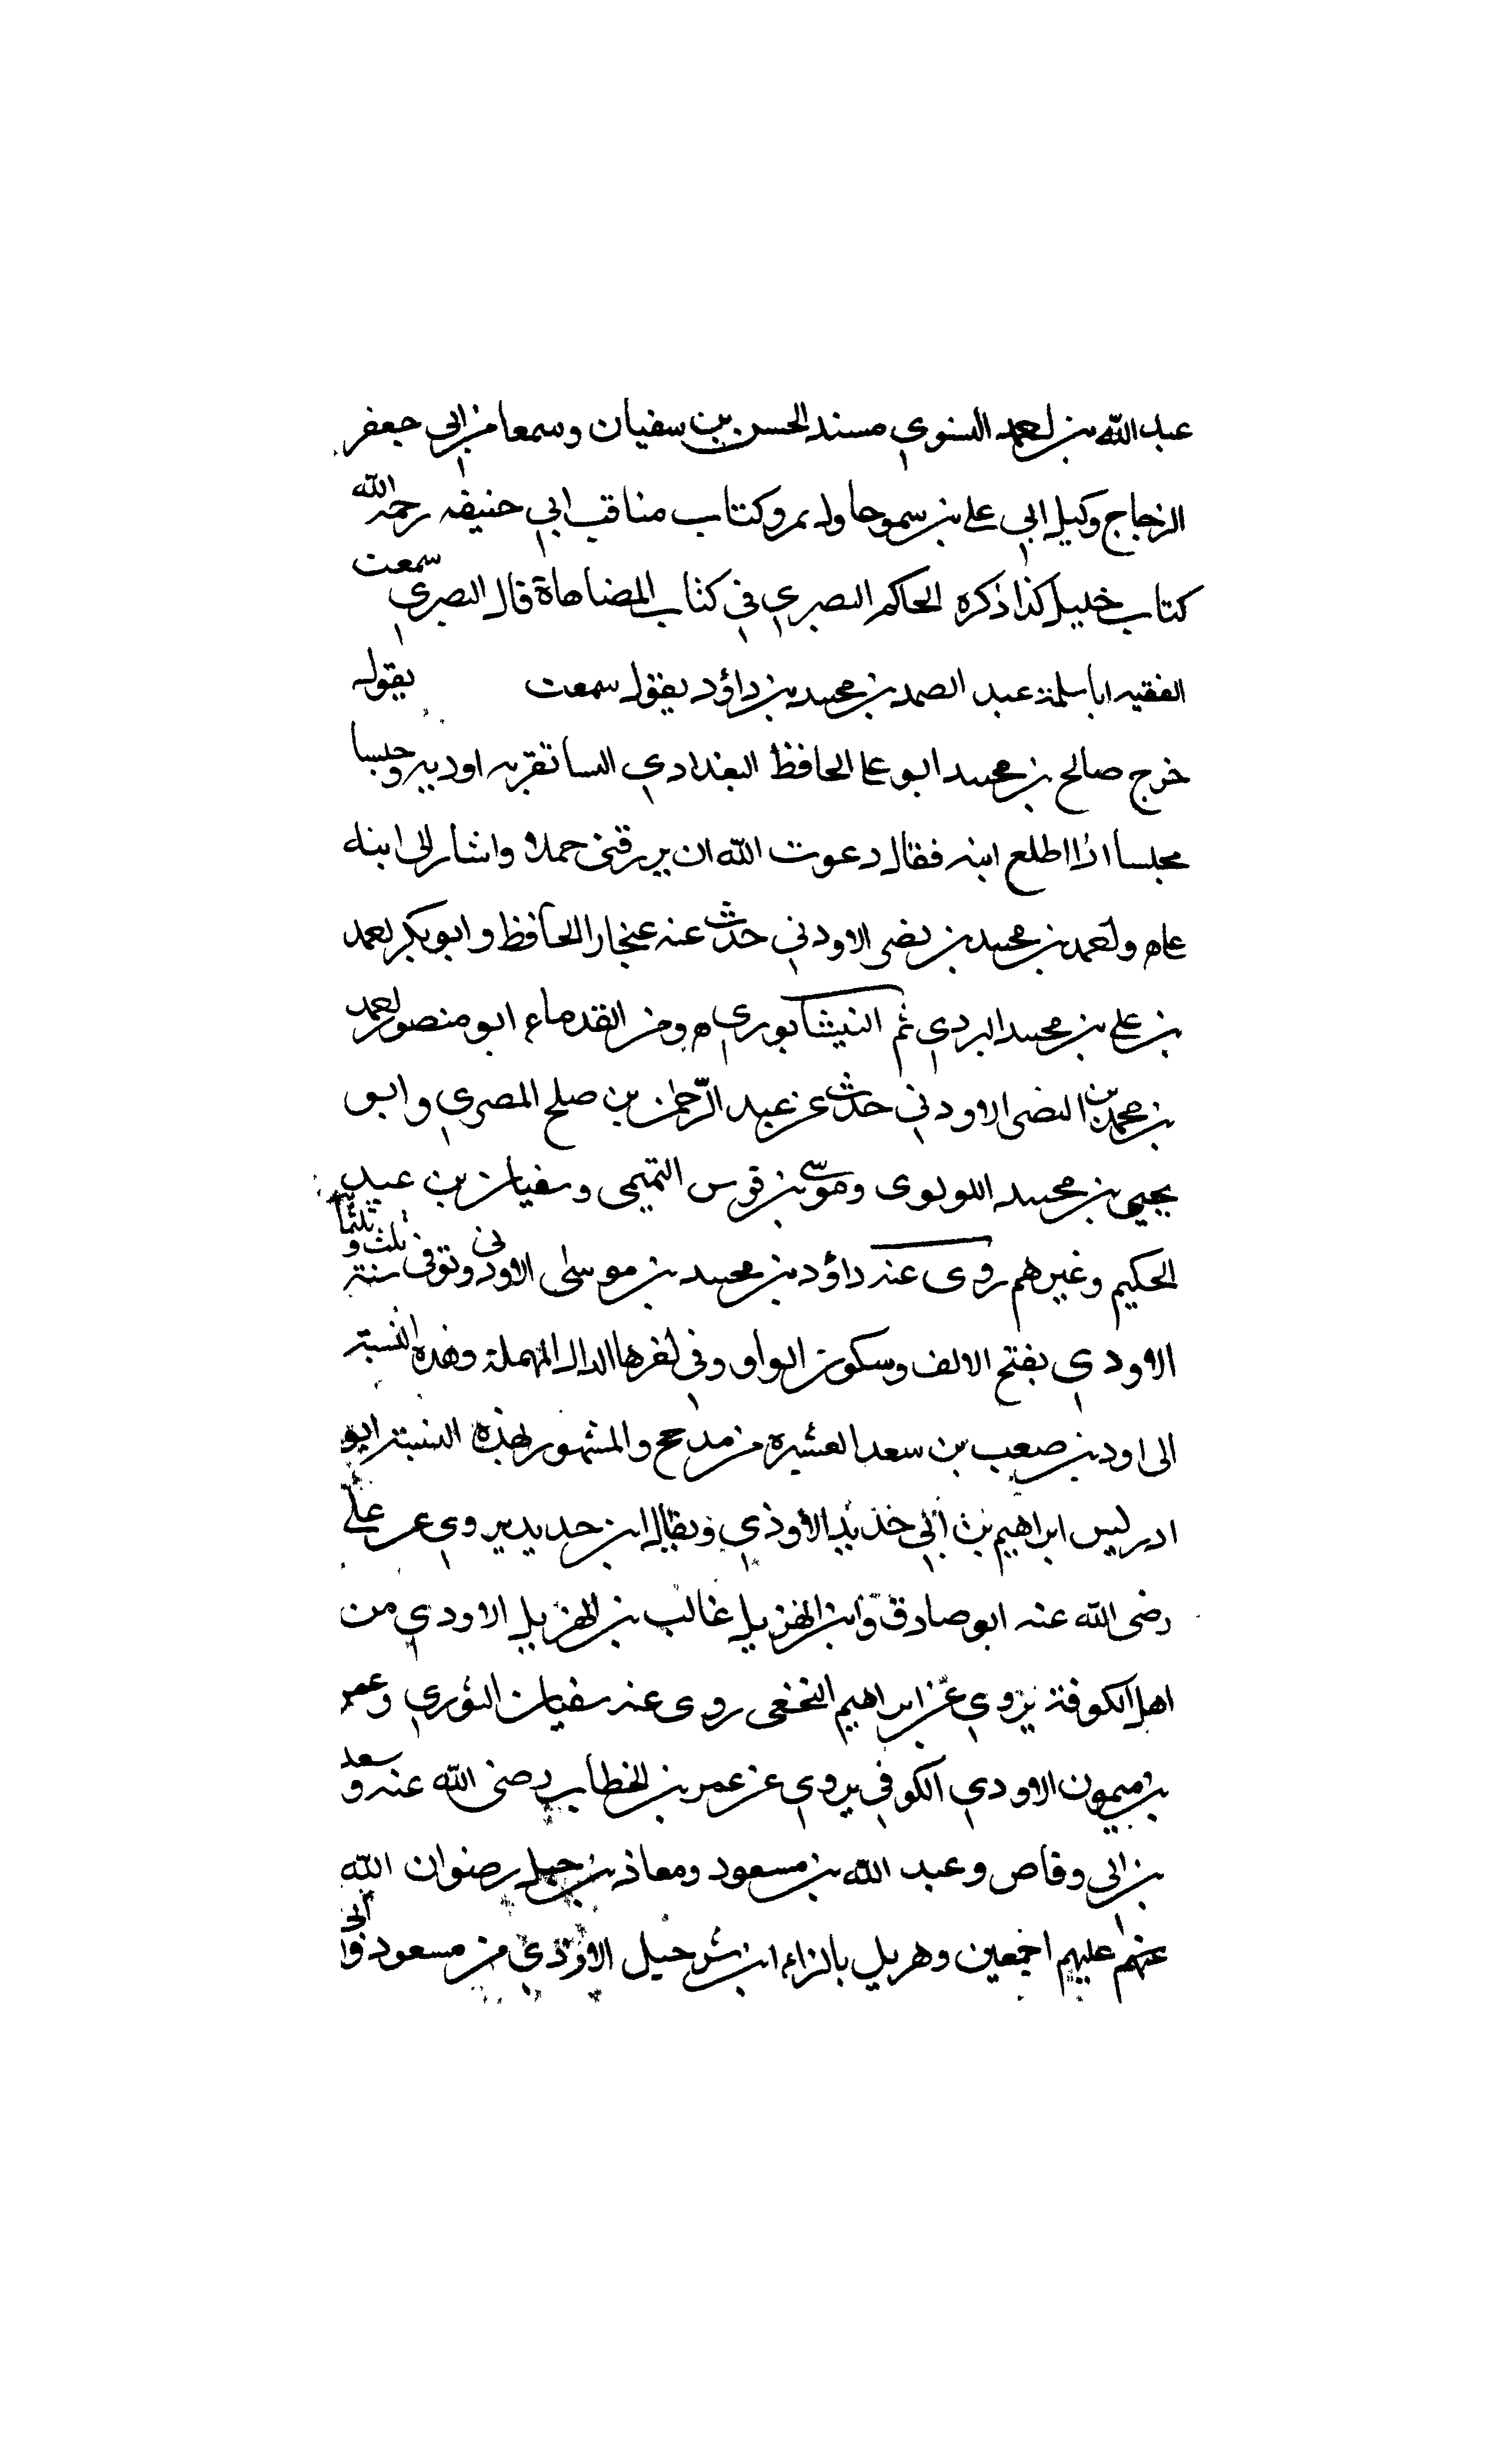 عبد الله بن احمد النسوي مسند الحسن بن سفيان وسمعا من ابي جعفر
الزجاج وكيل ابي علي بن سموحا وله بمرو كتاب مناقب ابي حنيفه رحمه الله
كتاب خليل كذا ذكره الحاكم البصري في كتاب المضاهاة قال البصري سمعت
الفقيه ابا سلمة عبد الصمد بن محمد بن داؤد يقول سمعت يقول
خرج صالح بن محمد ابو علي الحافظ البغدادي الينا تقريه اودنه وجلسنا
مجلسا اذا اطلع ابنه فقال دعوت الله ان يرزقني حملا واشار الى ابنه
واحمد بن محمد بن نضر الاودني حدث عنه غنجار الحافظ وابو بكر احمد
بن علي بن محمد اليزدي ثم النيشابوري ه ومن القدماء ابو منصور احمد
بن محمد بن النضر الاودني حدث عن عبد الرحمن بن صلح المصري وابو
يحيى بن محمد اللولوى وموسى بن قريش التميمي وسفيان بن عبد
الحكيم وغيرهم روى عنه داؤد بن محمد بن موسى الاودني وتوفى سنة ثلث و
الاودي بفتح الالف وسكون الواو وفي اخرها الدال المهملة وهذه النسبة
الى اود بن صعب بن سعد العشيرة من مدحج والمشهور بهذه النسبة ابو
ادريس ابراهيم بن ابي حديد الاودي ويقال ابن حديد يروي عن علي
رضى الله عنه ابو صادق وابن الهزيل غالب بن الهزيل الاودي من
اهل الكوفة يروي عن ابراهيم النخعي روى عنه سفيان الثوري وعمر
بن ميمون الاودي الكوفي يروي عن عمر بن الخطاب رضى الله عنه وسعد
بن ابى وقاص وعبد الله بن مسعود ومعاذ بن جبل رضوان الله
عنهم عليهم اجمعين وهزيل بالزاء ابن شرحيل الاودي من مسعود وابى